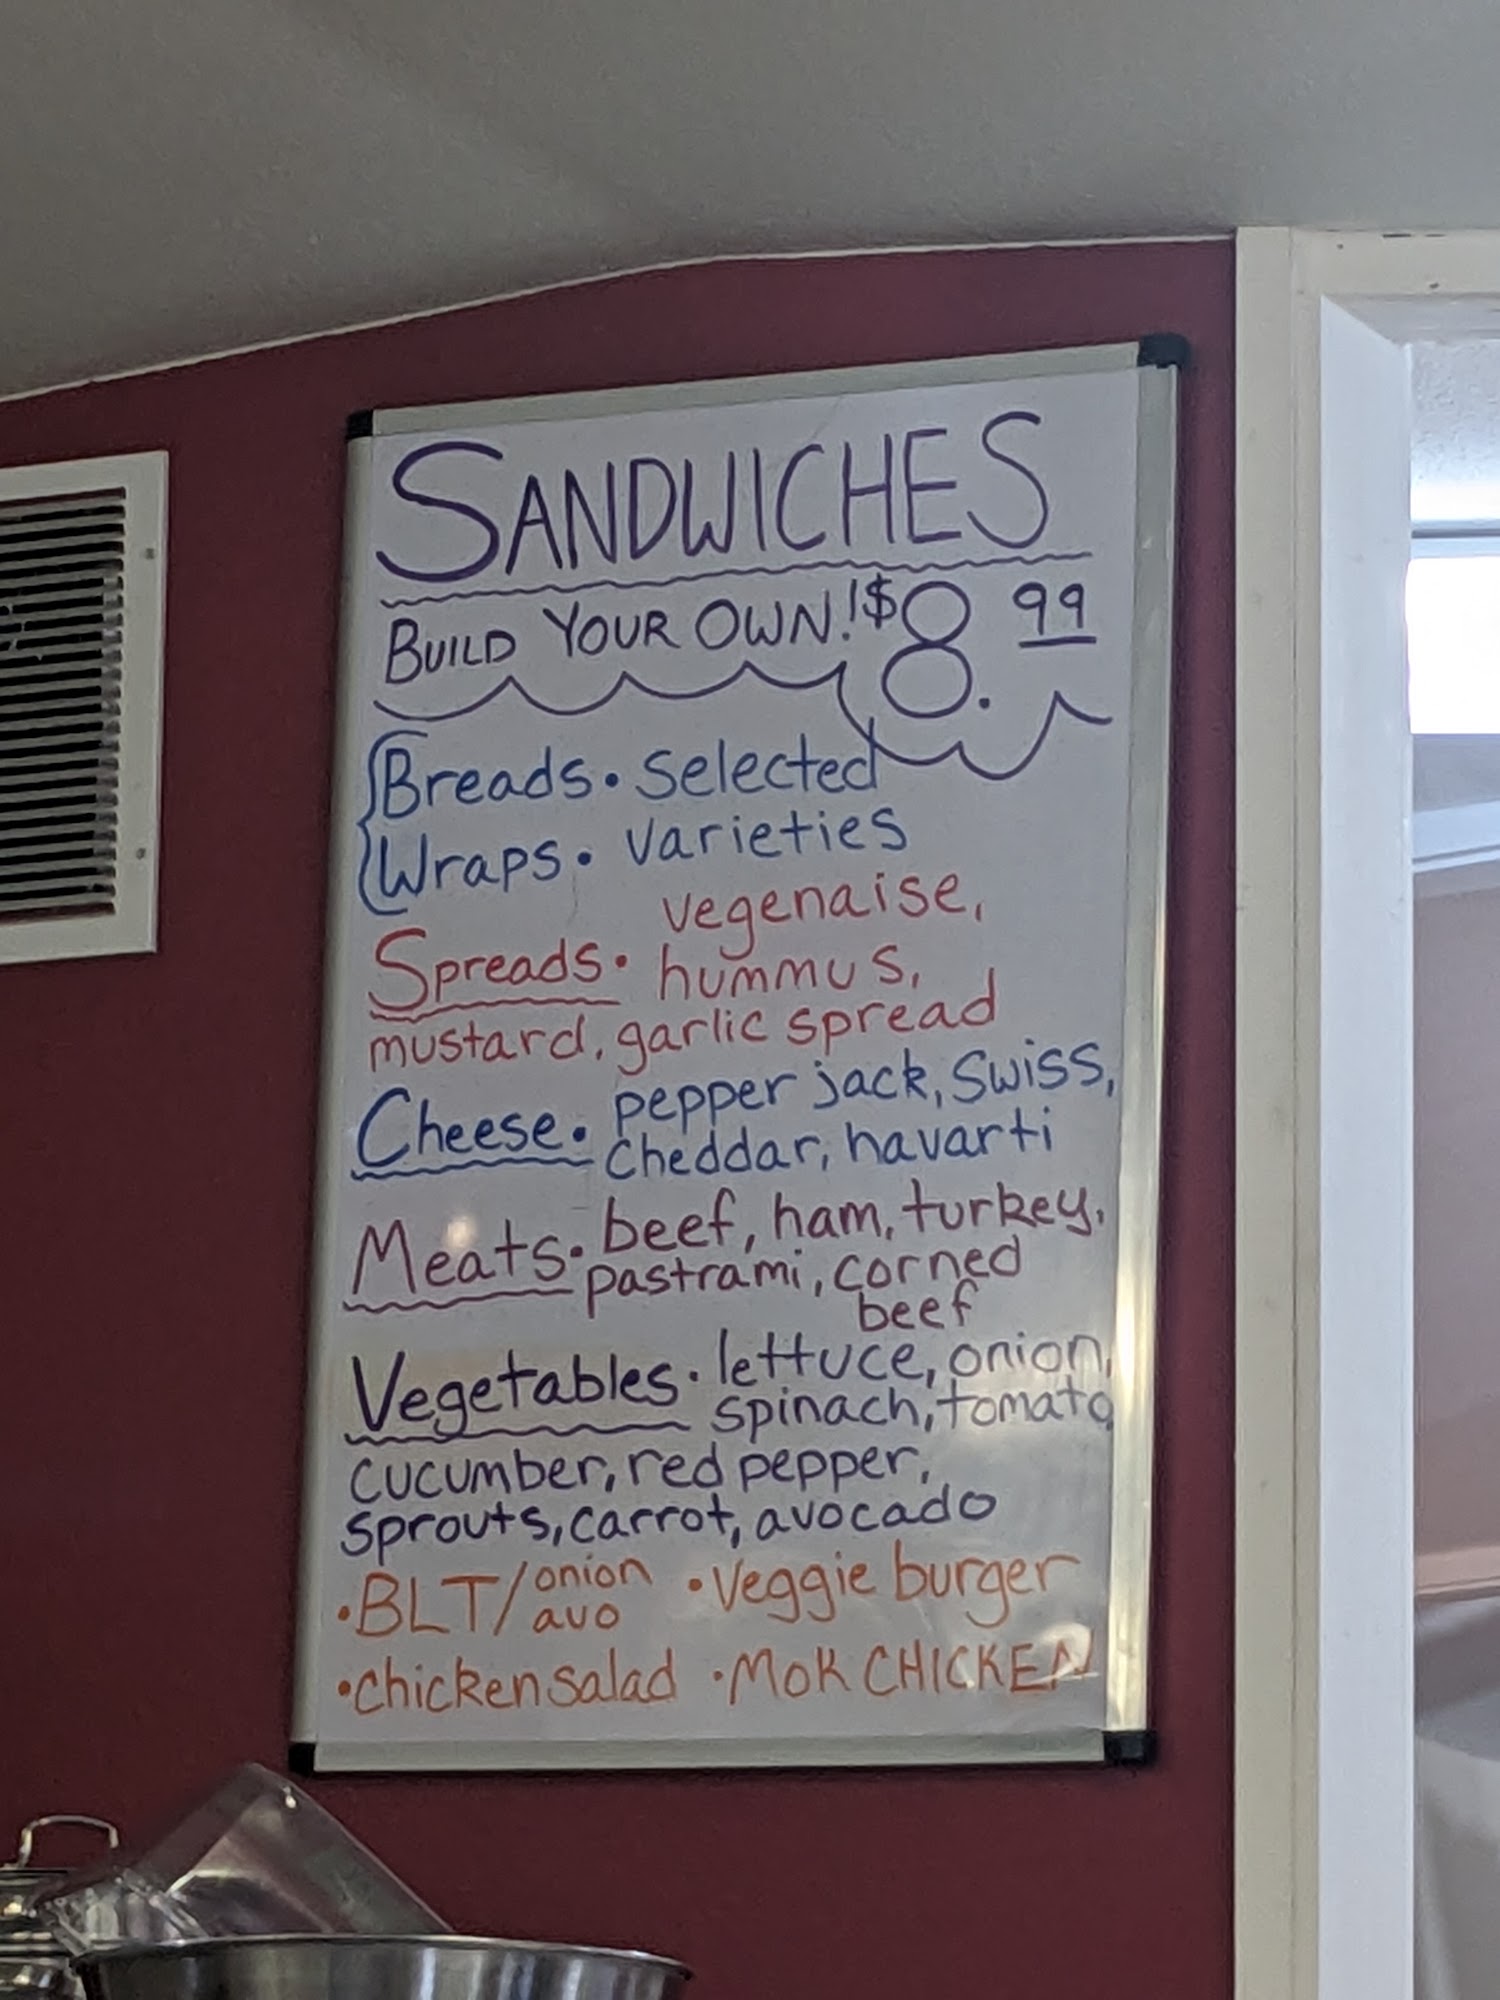 SANDWICHES
BUILD YOUR OWN! $8.99
Breads. Selected
Wraps. varieties
vegenaise,
Spreads. hummus,
mustard, garlic spread
Cheese. pepper jack, Swiss,
cheddar, havarti
Meats. beef, ham, turkey,
pastrami, corned
beef
Vegetables. lettuce, onion,
spinach, tomato
cucumber, red pepper,
sprouts, carrot, avocado
•BLT/onion avo •Veggie burger
•chicken salad •MOK CHICKEN